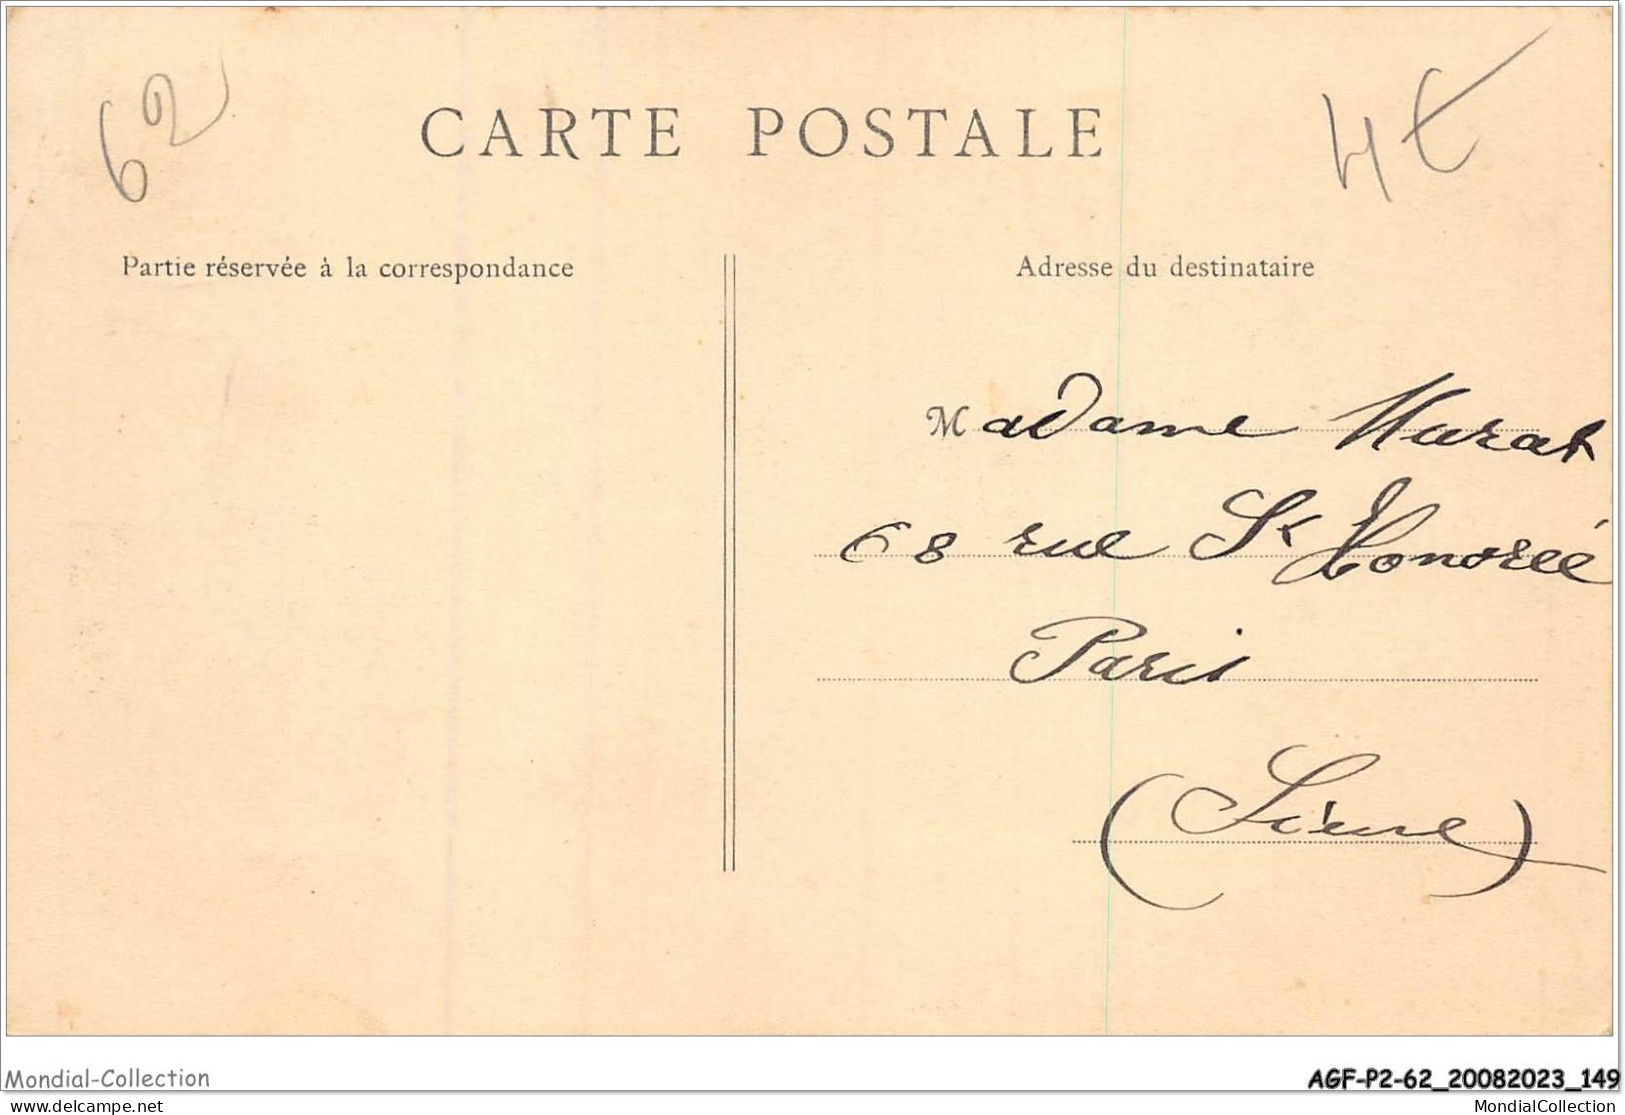 62
4€
CARTE POSTALE
Partie réservée à la correspondance
Adresse du destinataire
Madame Murat
68 rue St Honorée
Paris
(Sieine)
Mondial-Collection
AGF-P2-62_20082023_149
MondialCollection